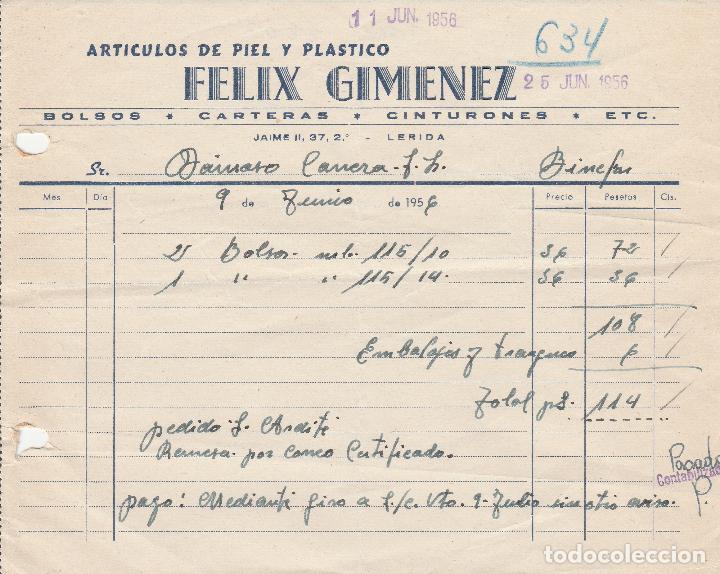 11 JUN. 1956
634
ARTICULOS DE PIEL Y PLASTICO
FELIX GIMENEZ
25 JUN. 1956
BOLSOS * CARTERAS * CINTURONES * ETC.
JAIME II, 37, 2.º - LERIDA
Sr. Dámaso Carrera - Binefar
Mes Día 9 de Junio de 1956 Precio Pesetas Cts.
2 Bolsos 115/10 36 72 /
1 " " 115/14. 36 36 /
108 /
Embalajes y 6 /
Total pts. 114 /
pedido S. Ardite
Remesa por Correo Certificado.
Pagado
Contabilizado
P.
pago: Mediante giro a s/c. Vto. 9 - Julio sin otro aviso.
todocoleccion.net